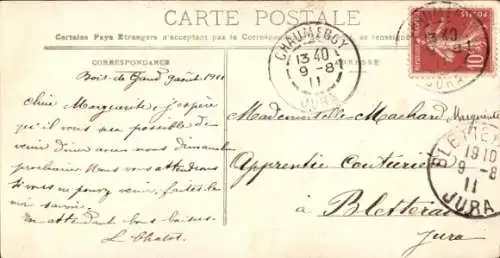 CARTE POSTALE
Certains Pays Etrangers n'acceptent pas la Correspondance
CORRESPONDANCE
Bois de Gand 9 août 1911
Chère Marguerite, j'espère
qu'il vous sera possible de
venir dîner avec nous dimanche
prochain. Nous vous attendons
si vous ne pouvez venir, faites le
moi savoir.
En attendant bons baisers.
L. Chatot.
CHAUMERGY
13 40
9 -8
11
JURA
10
13 40
JURA
Mademoiselle Machard Marguerite
Apprentie Couturière
à Bletterans
Jura
BLETTERANS
19 10
9 -8
11
JURA